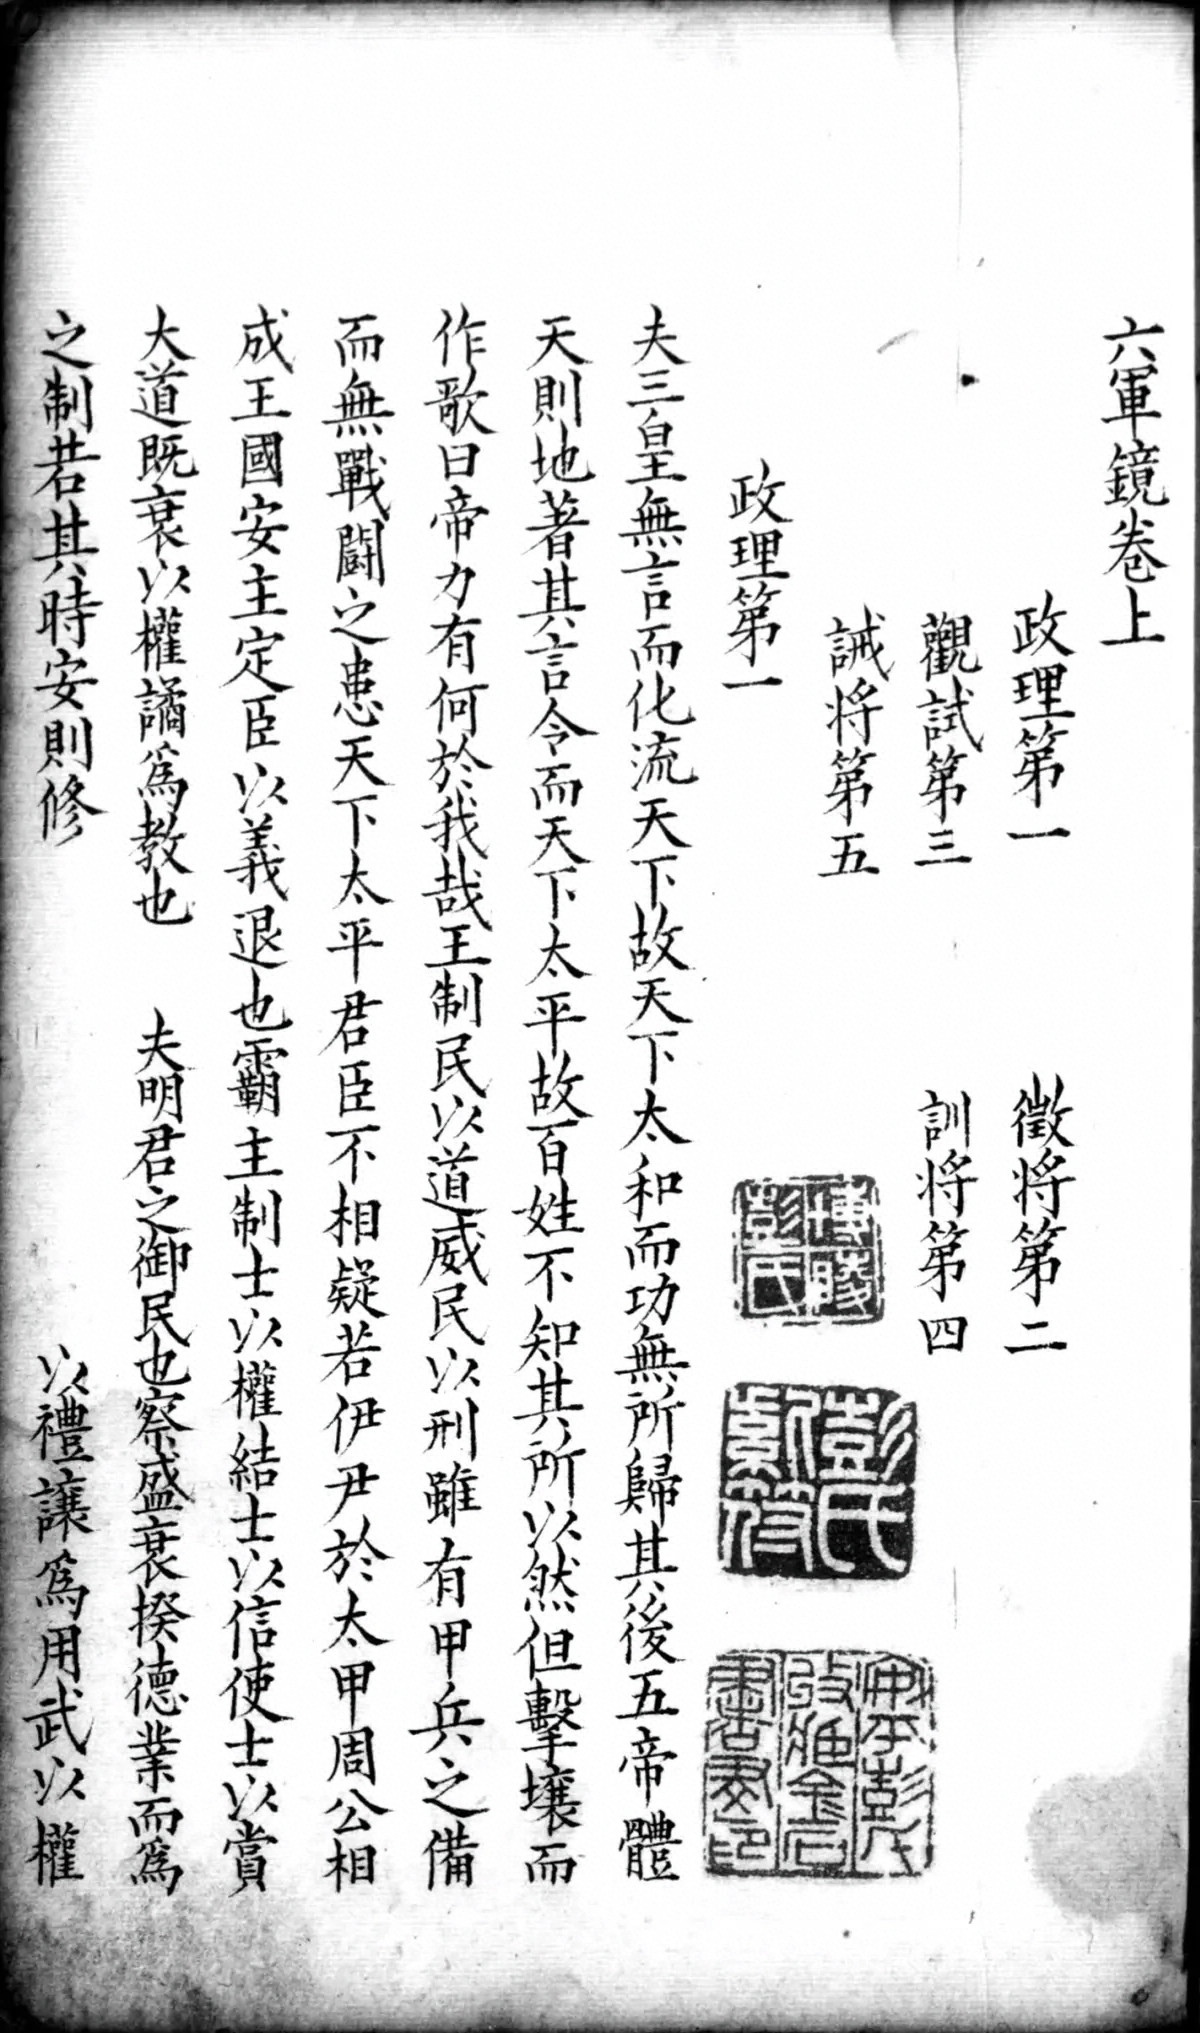 六軍鏡卷上
政理第一　徵將第二
觀試第三　訓將第四
誡將第五
政理第一
夫三皇無言而化流天下故天下太和而功無所歸其後五帝體
天則地著其言令而天下太平故百姓不知其所以然但擊壤而
作歌曰帝力有何於我哉王制民以道威民以刑雖有甲兵之備
而無戰鬪之患天下太平君臣不相疑若伊尹於太甲周公相
成王國安主定臣以義退也霸主制士以權結士以信使士以賞
大道既衰以權譎爲教也　夫明君之御民也察盛衰揆德業而爲
之制若其時安則修　以禮讓爲用武以權
博陵彭氏
彭氏